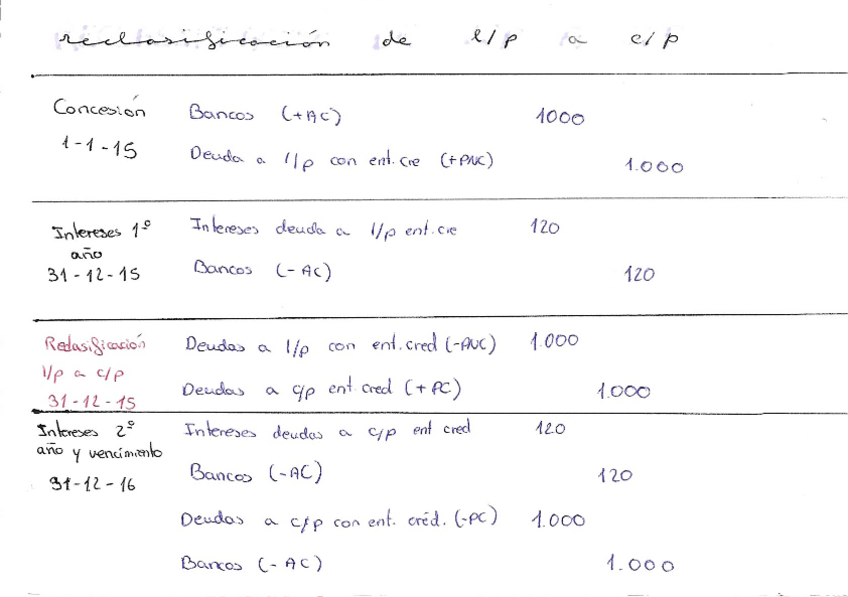 reclasificación de l/p a c/p
Concesión
1-1-15
Bancos (+AC) 1000
Deuda a l/p con ent.cre (+PNC) 1.000
Intereses 1º
año
31-12-15
Intereses deuda a l/p ent.cre 120
Bancos (-AC) 120
Reclasificación
l/p a c/p
31-12-15
Deudas a l/p con ent.cred (-PNC) 1.000
Deudas a c/p ent cred (+PC) 1.000
Intereses 2º
año y vencimiento
31-12-16
Intereses deudas a c/p ent cred 120
Bancos (-AC) 120
Deudas a c/p con ent. créd. (-PC) 1.000
Bancos (-AC) 1.000